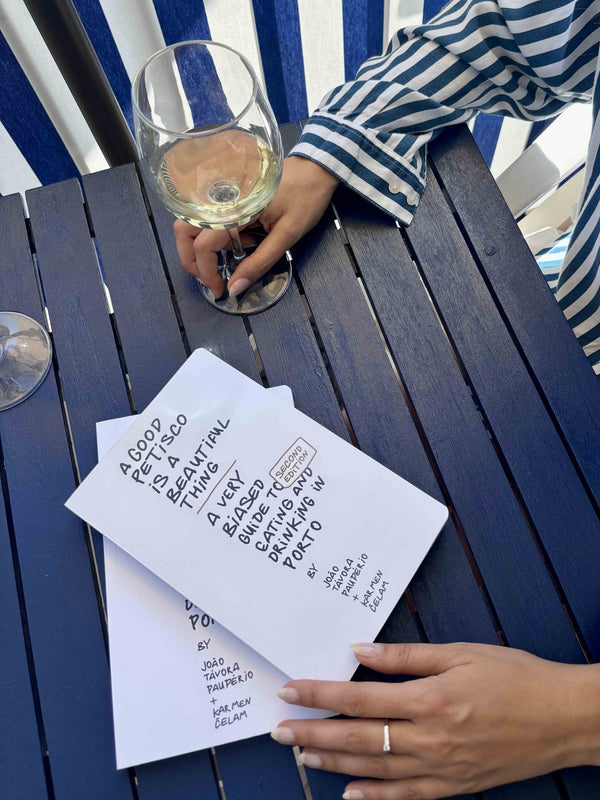 A GOOD
PETISCO
iS A
BEAUTIFUL
THING
A VERY
BIASED
GUIDE TO
EATING AND
DRINKING IN
PORTO
SECOND
EDITION
BY
JOÃO
TÁVORA
PAUPÉRIO
+
KARMEN
ČELAM
POR
BY
JOÃO
TÁVORA
PAUPÉRIO
+
KARMEN
ČELAM